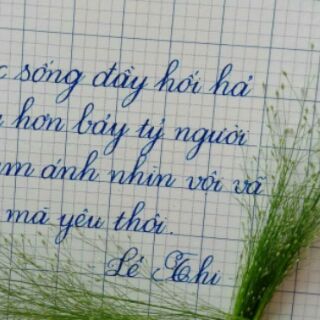 sống đầy hối hả
hơn bảy tỷ người
ánh nhìn vội vã
mà yêu thôi.
Lê Thi